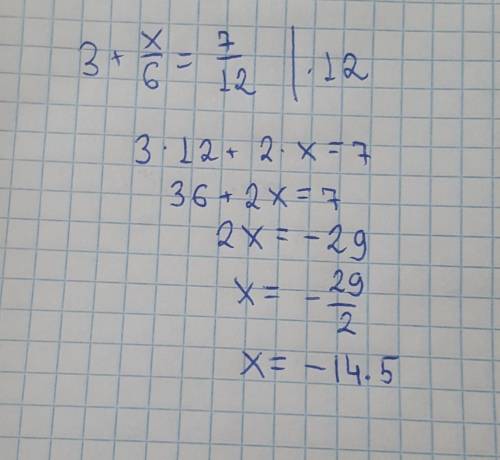 3 + x/6 = 7/12 | · 12
3 · 12 + 2 · x = 7
36 + 2x = 7
2x = -29
x = - 29/2
x = -14.5